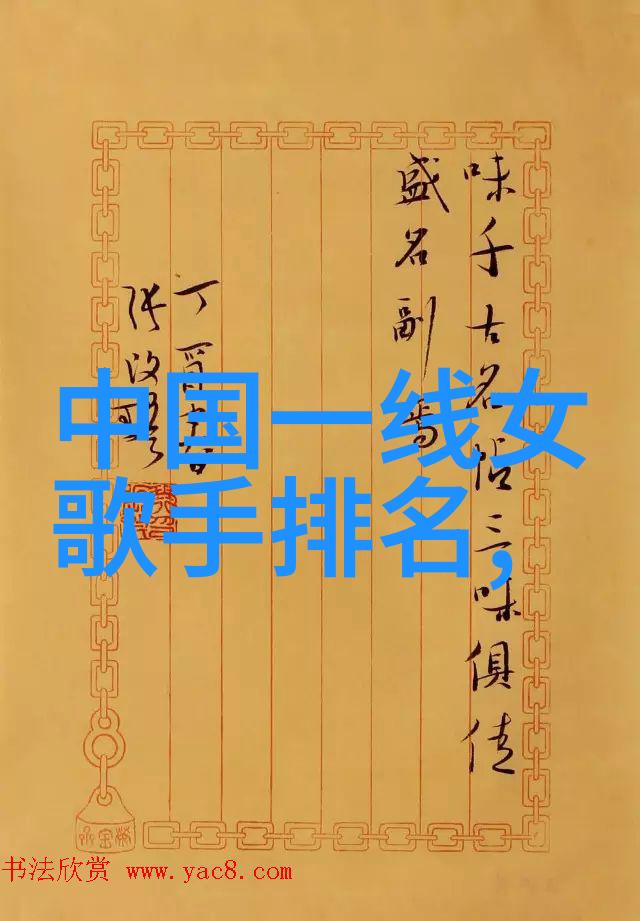 味千古名帖三味俱佳
盛名副焉
丁酉
中国一线女
歌手排名,
书法欣赏 www.yac8.com